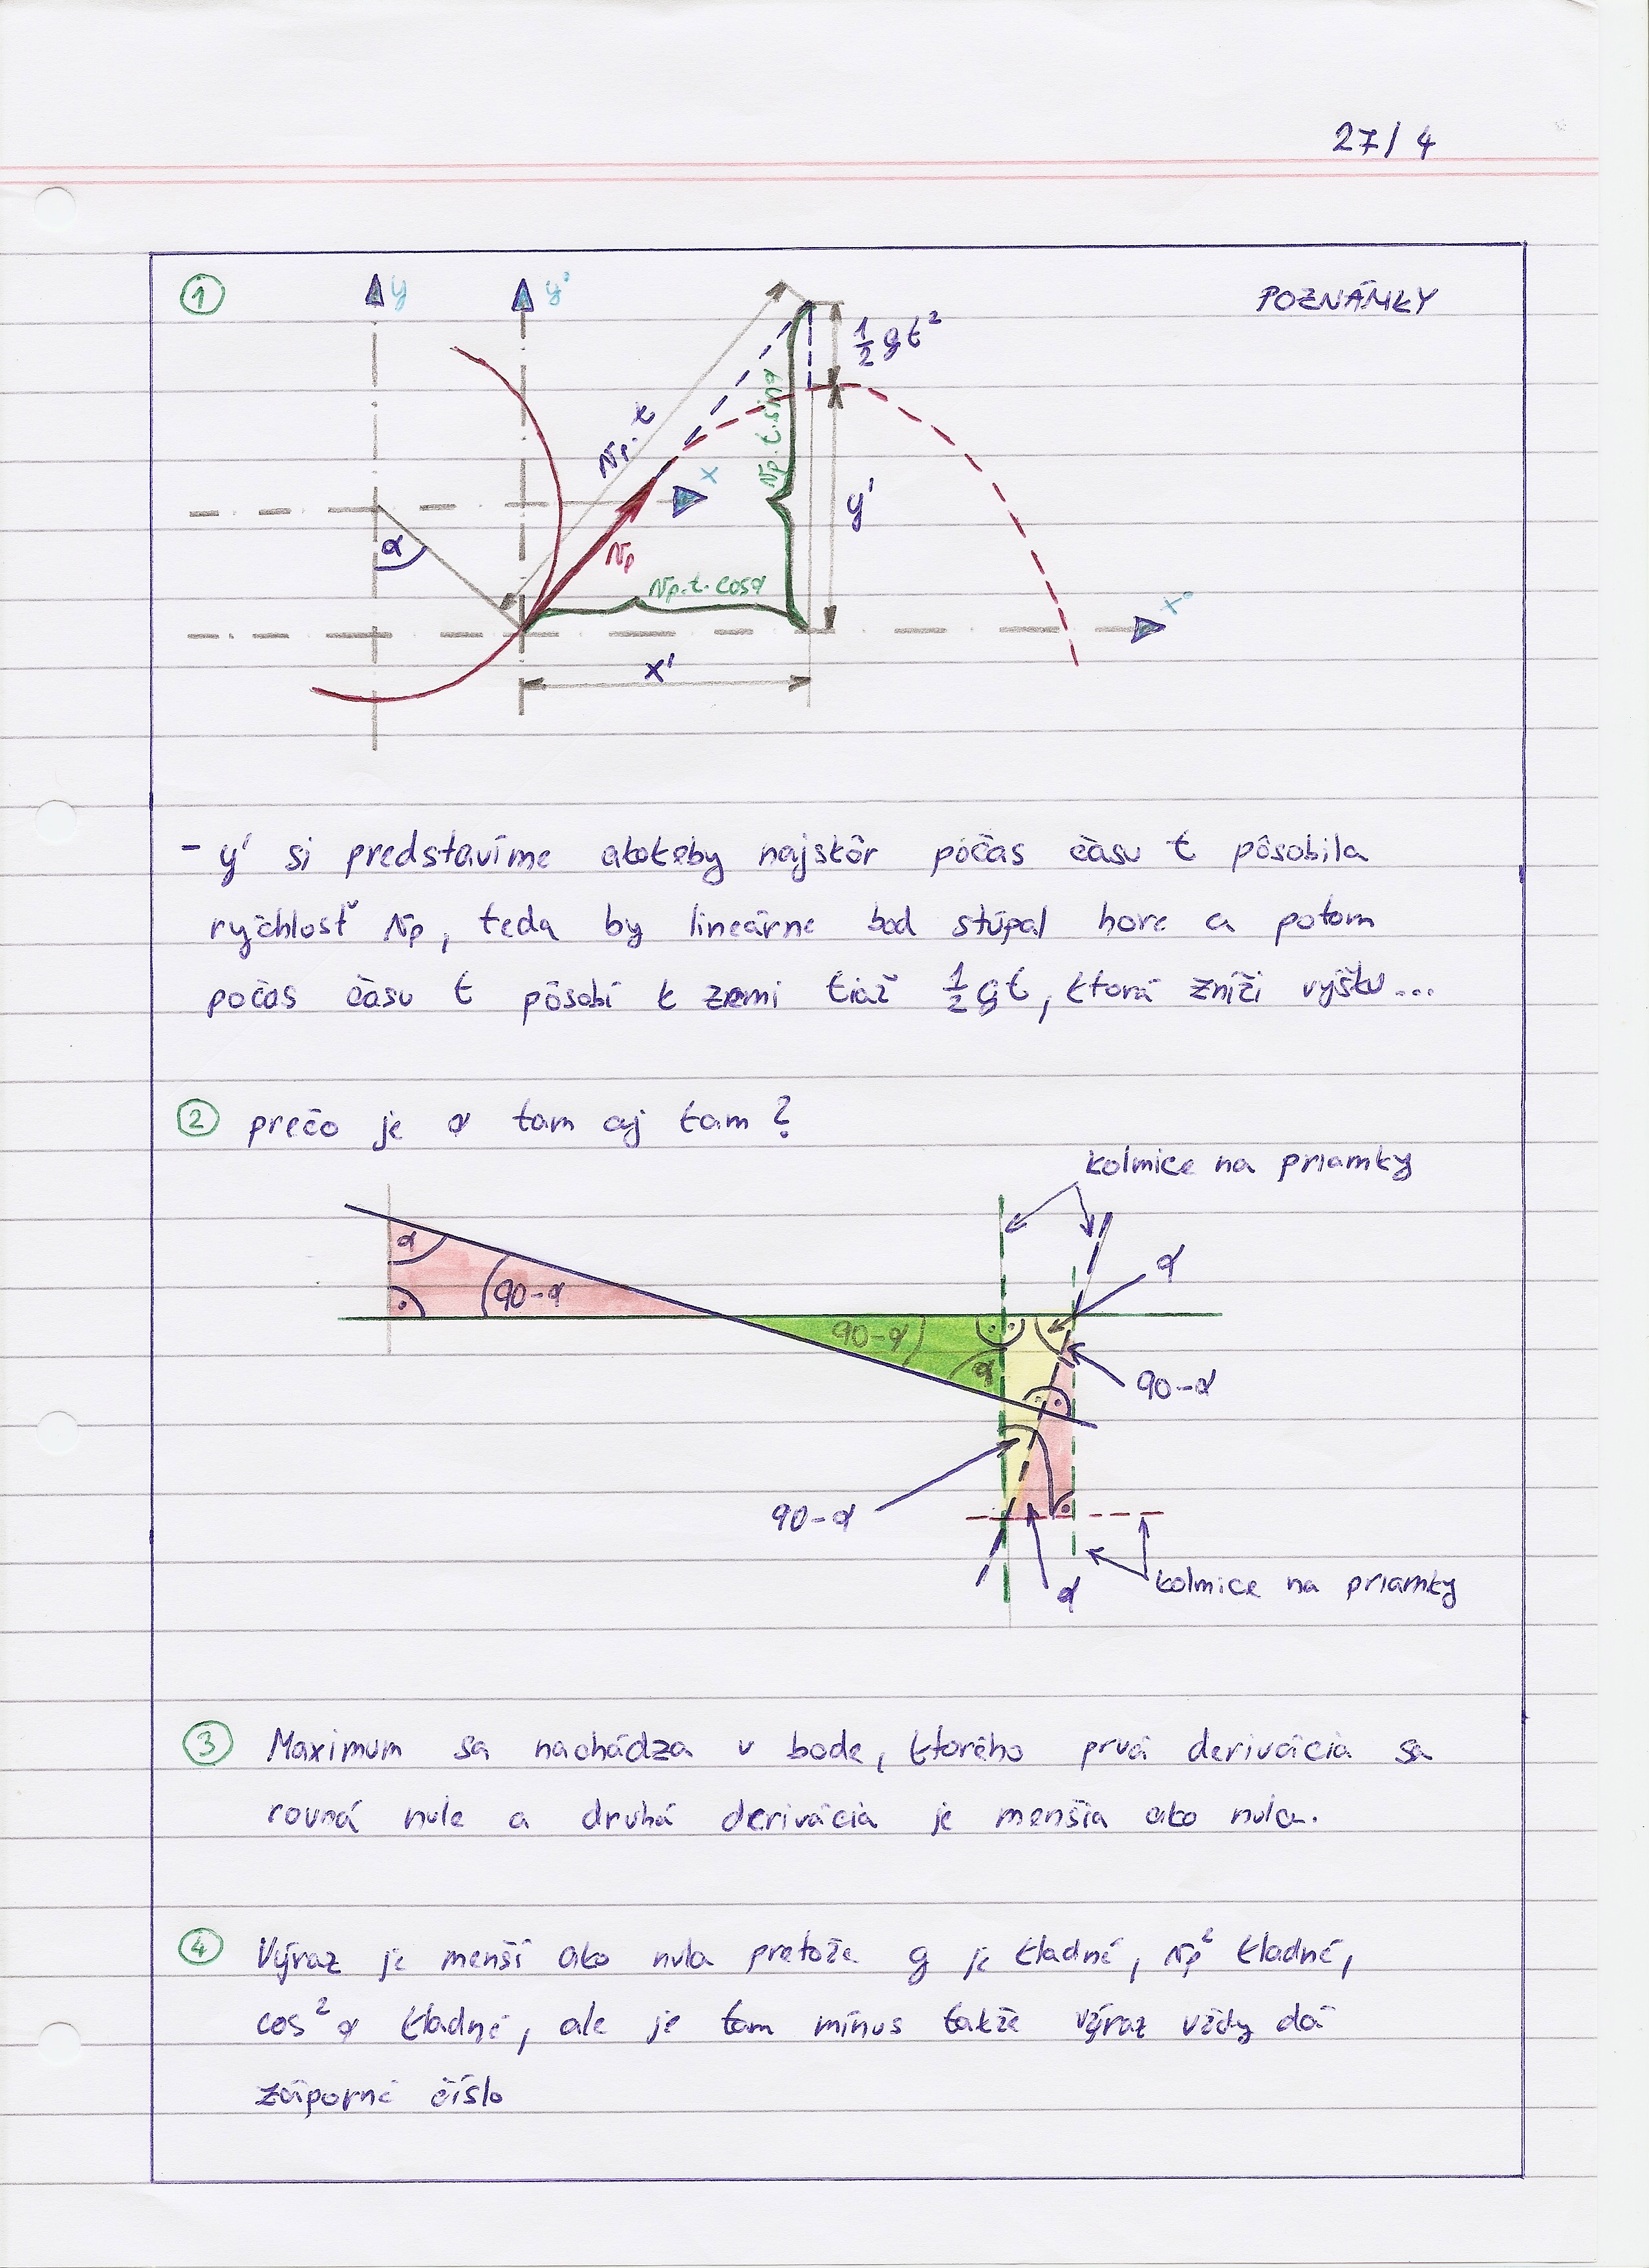 27/4
① POZNÁMKY
y
y'
½gt²
Np.t
Np.t.sinα
x
y'
α
Np
Np.t.cosα
x'
x'
- y' si predstavíme akokeby najskôr počas času t pôsobila
rýchlosť Np, teda by lineárne bod stúpal hore a potom
počas času t pôsobí k zemi tiaž ½gt, ktorá zníži výšku...
② prečo je α tam aj tam?
kolmice na priamky
α
α
90-α
90-α
α
90-α
90-α
α
kolmice na priamky
③ Maximum sa nachádza v bode, ktorého prvá derivácia sa
rovná nule a druhá derivácia je menšia ako nula.
④ Výraz je menší ako nula pretože g je kladné, Np² kladné,
cos²α kladné, ale je tam mínus takže výraz vždy dá
záporné číslo